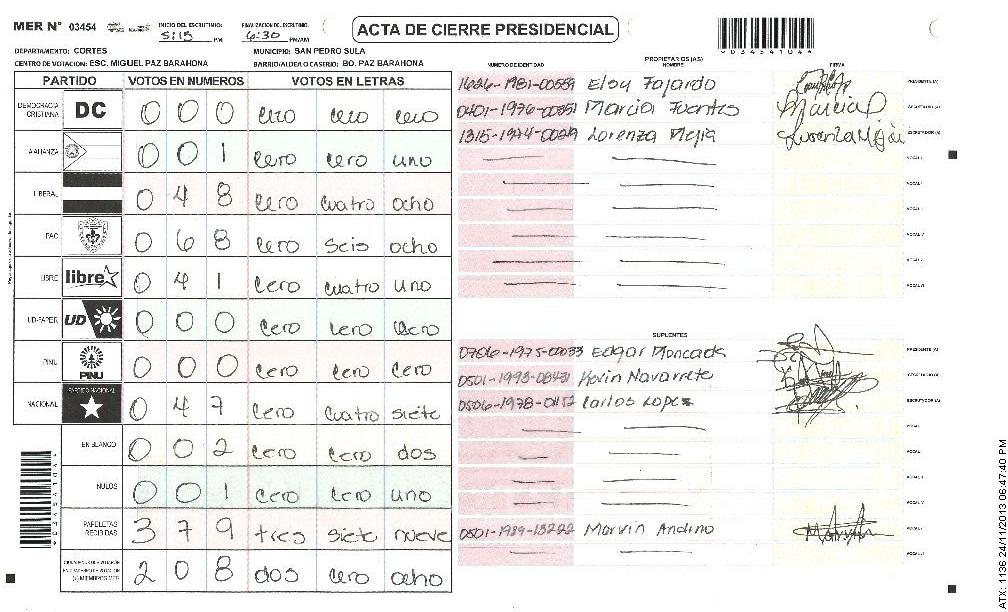 MER N° 03454 INICIO DEL ESCRUTINIO: 5:15 PM FINALIZACION DEL ESCRUTINIO: 6:30 PM/AM
ACTA DE CIERRE PRESIDENCIAL
DEPARTAMENTO: CORTES MUNICIPIO: SAN PEDRO SULA
CENTRO DE VOTACION: ESC. MIGUEL PAZ BARAHONA BARRIO/ALDEA O CASERIO: BO. PAZ BARAHONA
PARTIDO VOTOS EN NUMEROS VOTOS EN LETRAS
DEMOCRACIA CRISTIANA DC 0 0 0 cero cero cero
ALIANZA 0 0 1 cero cero uno
LIBERAL 0 4 8 cero cuatro ocho
PAC 0 6 8 cero seis ocho
LIBRE libre 0 4 1 cero cuatro uno
UD-FAPER UD 0 0 0 cero cero cero
PINU PINU 0 0 0 cero cero cero
NACIONAL PARTIDO NACIONAL 0 4 7 cero cuatro siete
EN BLANCO 0 0 2 cero cero dos
NULOS 0 0 1 cero cero uno
PAPELETAS RECIBIDAS 3 7 9 tres siete nueve
2 0 8 dos cero ocho
PROPIETARIOS (AS)
NUMERO DE IDENTIDAD NOMBRE FIRMA
1626-1981-00559 Elsy Fajardo PRESIDENTE (A)
0401-1976-00351 Marcia Fuentes Marcia SECRETARIO (A)
Lorenza Mejia Lorenza Mejia ESCRUTADOR (A)
VOCAL I
SUPLENTES
Edgar Moncada PRESIDENTE (A)
Kevin Navarrete SECRETARIO (A)
Carlos Lopez ESCRUTADOR (A)
VOCAL I
Marvin Andino
ATX: 1136 24/11/2013 06:47:40 PM